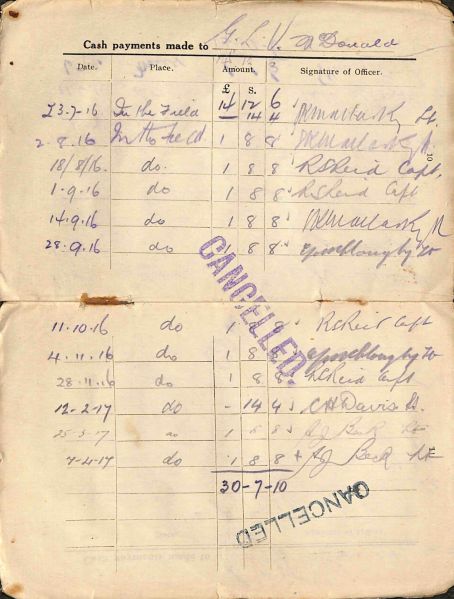 Cash payments made to G. L. V. McDonald
Date. Place. Amount. Signature of Officer.
£ S.
14 12 6
23-7-16 In the Field 14 4 Lt.
2.8.16 In the Field 1 8 8
10
18/8/16 do. 1 8 8 RSReid Capt,
1-9-16 do 1 8 8 RSReid Capt
14.9.16 do 1 8 8
28.9.16 do 1 8 8
CANCELLED.
11.10.16 do 1 RSReid Capt
4.11.16 do 1 8 8
28.11.16 do 1 8 8 RSReid Capt
12-2-17 do - 14 4 CHDavis Lt.
25-3-17 do 1 8 8 AJ Beck Lt
7-4-17 do 1 8 8 + AJ Beck Lt
30-7-10
CANCELLED